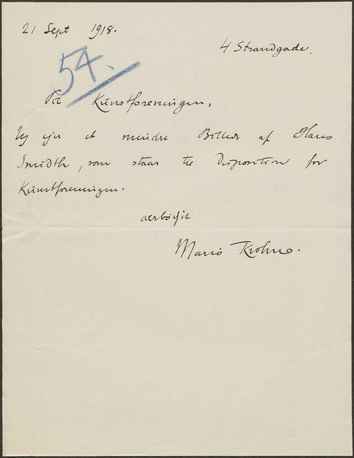 21 Sept 1918.
4 Strandgade.
54.
Til Kunstforeningen,
Jeg ejer et mindre Billede af Hans
Smidth, som staar til Disposition for
Kunstforeningen.
ærbødigst
Mario Krohn.